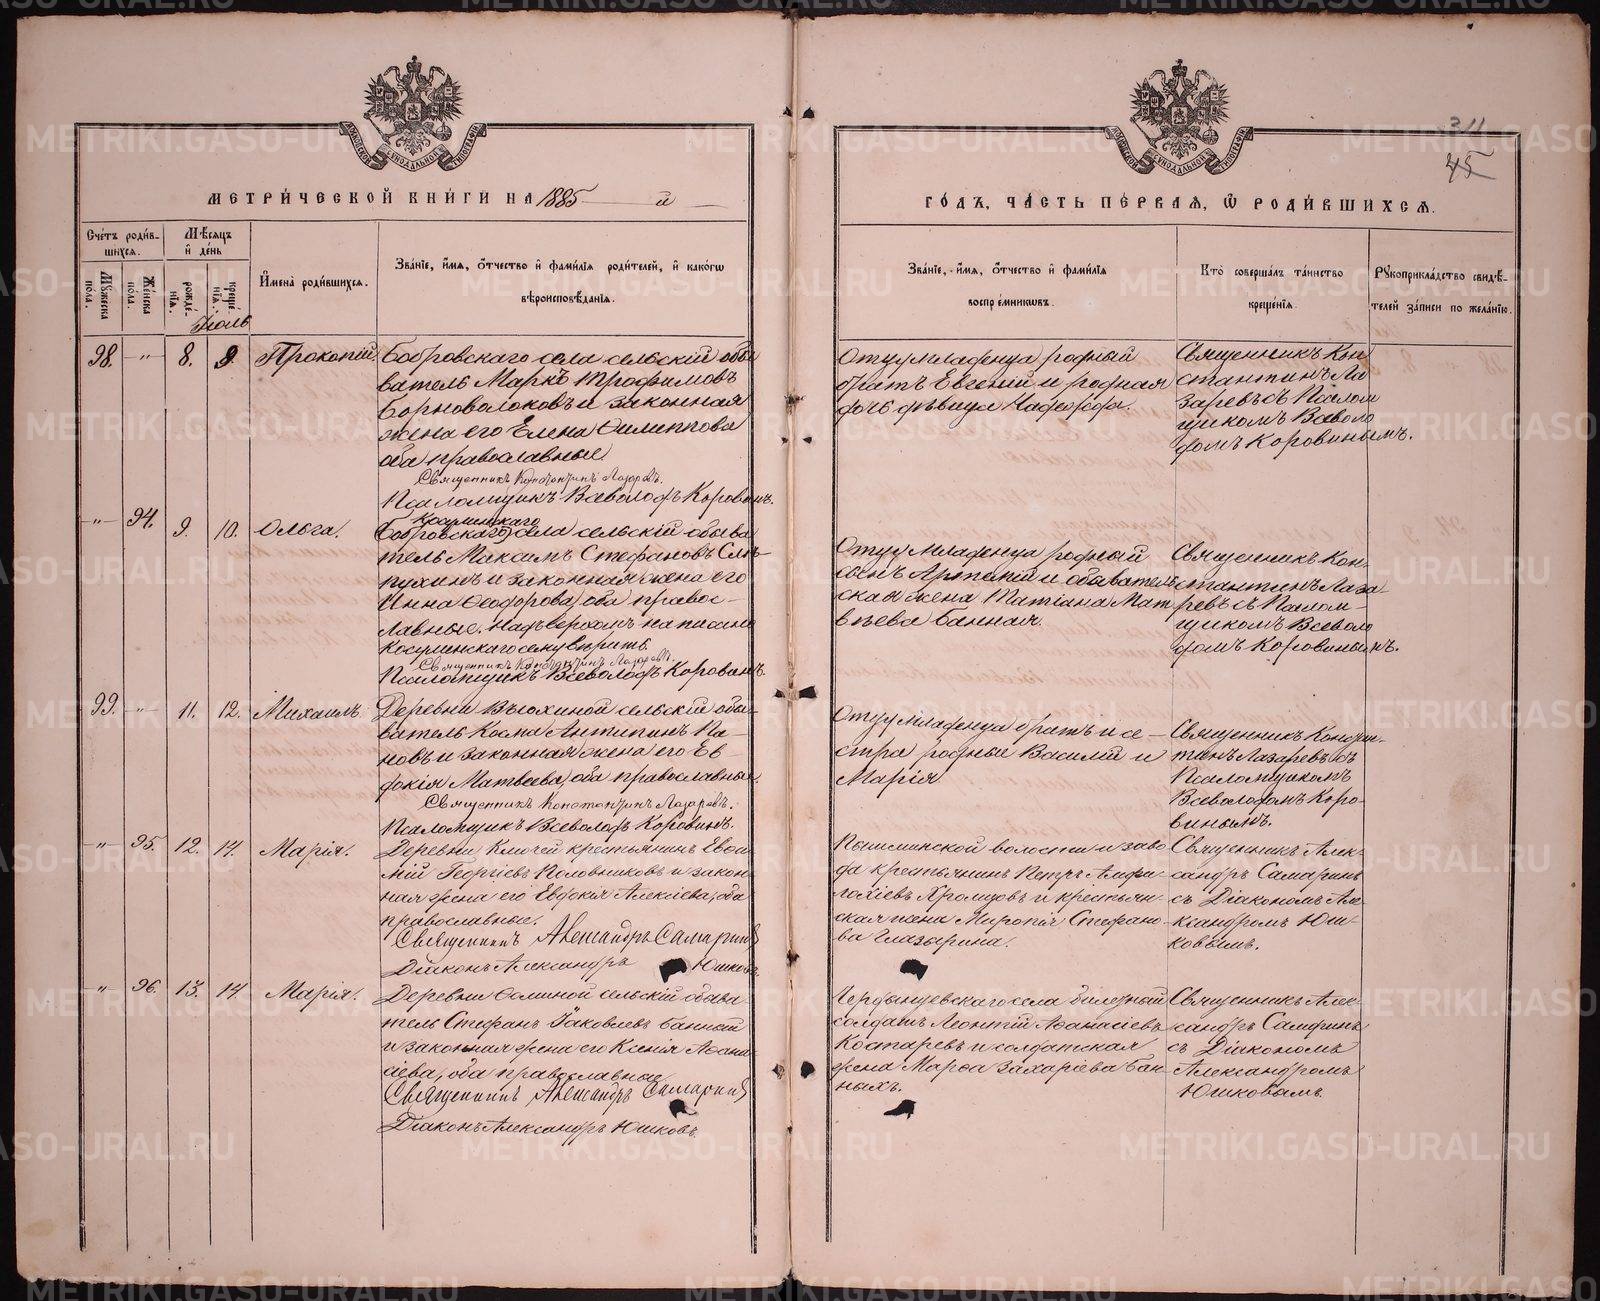 311
45
МЕТРИ́ЧЕСКОЙ КНИ́ГИ НА 1885 й
ГО́ДЪ, ЧА́СТЬ ПЕ́РВАЯ, Ѿ РОДИ́ВШИХСЯ.
Сче́тъ роди́в-
шихся.
Мѣ́сяцъ
и де́нь
Мꙋ́жеска
по́ла.
Же́нска
по́ла.
рожде́-
нїя.
креще́
нїя.
Имена̀ роди́вшихся.
Зва́нїе, и́мя, ѻ҆́тчество и фами́лїя роди́телей, и како́гѡ
вѣроисповѣ́данїя.
Зва́нїе, и́мя, ѻ҆́тчество и фами́лїя
воспрїе́мникѡвъ.
Кто̀ соверша́лъ та́инство
креще́нїя.
Рꙋкоприкла́дство свидѣ́-
телей за́писи по жела́нїю.
Іюль
98. " 8. 9. Прокопій
Бобровскаго села сельскій обы
ватель Маркъ Трофимовъ
Борноволоковъ и законная
жена его Елена Филиппова
оба православные
Священникъ Константинъ Лазаревъ.
Псаломщикъ Всеволодъ Коровинъ.
Отцу младенца родный
братъ Евгений и родная
дочь дѣвица
Священникъ Кон
стантинъ Ла
заревъ съ Псалом
щикомъ Всеволо
домъ Коровинымъ.
" 94. 9. 10. Ольга.
Косулинскаго
(Бобровскаго) села сельскій обыва
тель Максимъ Стефановъ Сле-
пухинъ и законная жена его
Анна Феодорова, оба правос-
лавные. Надъ верхомъ написан
Косулинскаго сему вѣрить
Священникъ Константинъ Лазаревъ.
Псаломщикъ Всеволодъ Коровинъ.
Отцу младенца родный
сынъ Артемій и обыватель
ская жена Татіана Мат
вѣева Банная.
Священникъ Кон-
стантинъ Лаза
ревъ съ Псалом-
щикомъ Всеволо
домъ Коровинымъ.
99. " 11. 12. Михаилъ
Деревни Вьюхиной сельскій обы
ватель Косма Антипинъ Па-
новъ и законная жена его Ев-
докія Матвеева, оба православные.
Священникъ Константинъ Лазаревъ.
Псаломщикъ Всеволодъ Коровинъ.
Отцу младенца братъ и се-
стра родные Василій и
Марія
Священникъ Констан-
тинъ Лазаревъ съ
Псаломщикомъ
Всеволодомъ Коро-
винымъ.
" 95. 12. 14. Марія.
Деревни Ключей крестьянинъ Евфи
мій Георгіевъ Половниковъ и закон
ная жена его Евдокія Алексіева, оба
православные.
Священникъ Александръ Самаринъ
Діаконъ Александръ Юшковъ.
Пышминской волости и заво
да крестьянинъ Петръ Амфи
лохіевъ Хромцовъ и крестьян-
ская жена Миропія Стефано-
ва Глазырина.
Священникъ Алек-
сандръ Самаринъ
съ Діакономъ Але-
ксандромъ Юш-
ковымъ.
" 96. 13. 14. Марія.
Деревни Фоминой сельскій обыва
тель Стефанъ Іаковлевъ Банный
и законная жена его Ксенія Афана
сіева, оба православные
Священникъ Александръ Самаринъ
Діаконъ Александръ Юшковъ.
села билетный
солдатъ Леонтій Афанасіевъ
Костаревъ и солдатская
жена Марфа Захаріева Бан
ныхъ.
Священникъ Алек-
сандръ Самаринъ
съ Діакономъ
Александромъ
Юшковымъ.
METRIKI.GASO-URAL.RU